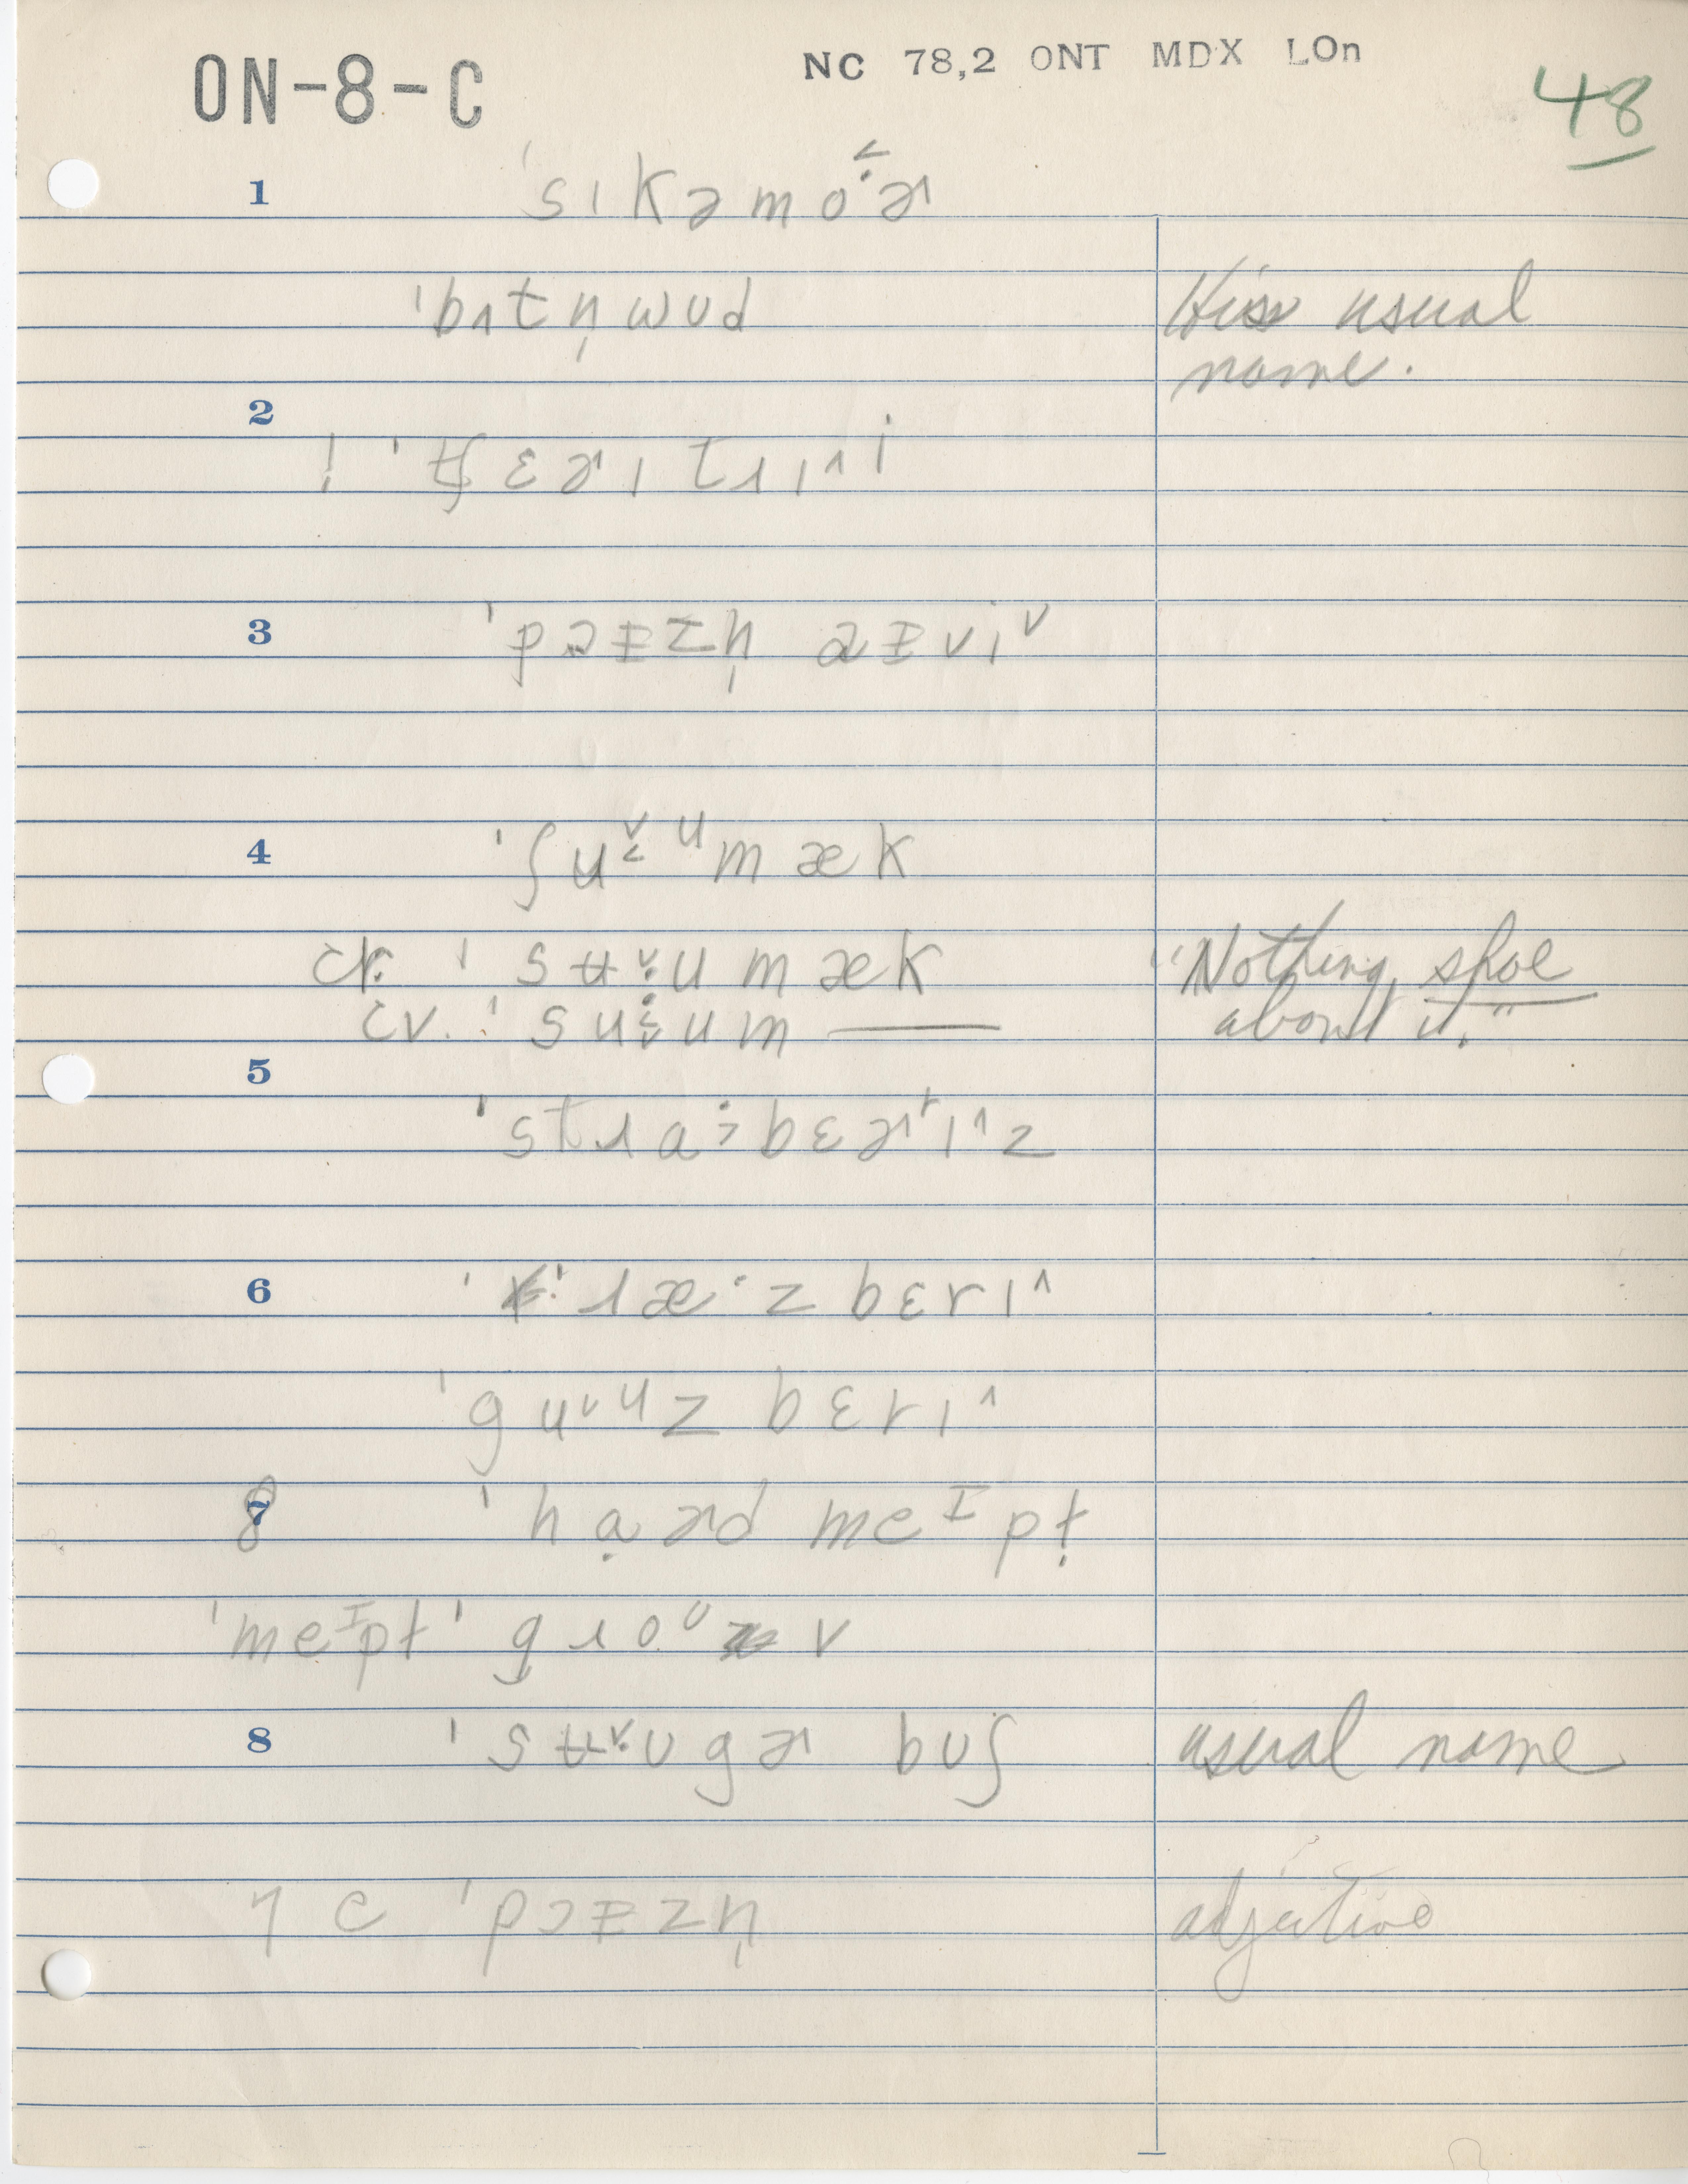 ON-8-C
NC 78,2 ONT MDX LOn
48
1 ˈsɪkəmoˑ˂ɚ
ˈbʌtn̩wʊd
His usual
name.
2
! ˈtʃɛɚɪ tɹɪi
3 ˈpɔɪzn̩ aɪvi
4 ˈʃuˑumæk
cr. ˈsʉˑumæk
"Nothing shoe
cv. ˈsuˑum ———
about it."
5
ˈstɹɑˑbɛɚɪz
6 ˈɹæˑzbɛrɪ
ˈguuzbɛrɪ
8 7 ˈhɑɚd meᴵpɫ
ˈmeᴵpɫ ˈgɹoᶷv
8 ˈsʉˑʊgɚ bʊʃ
usual name
7 c ˈpɔɪzn̩
adjective